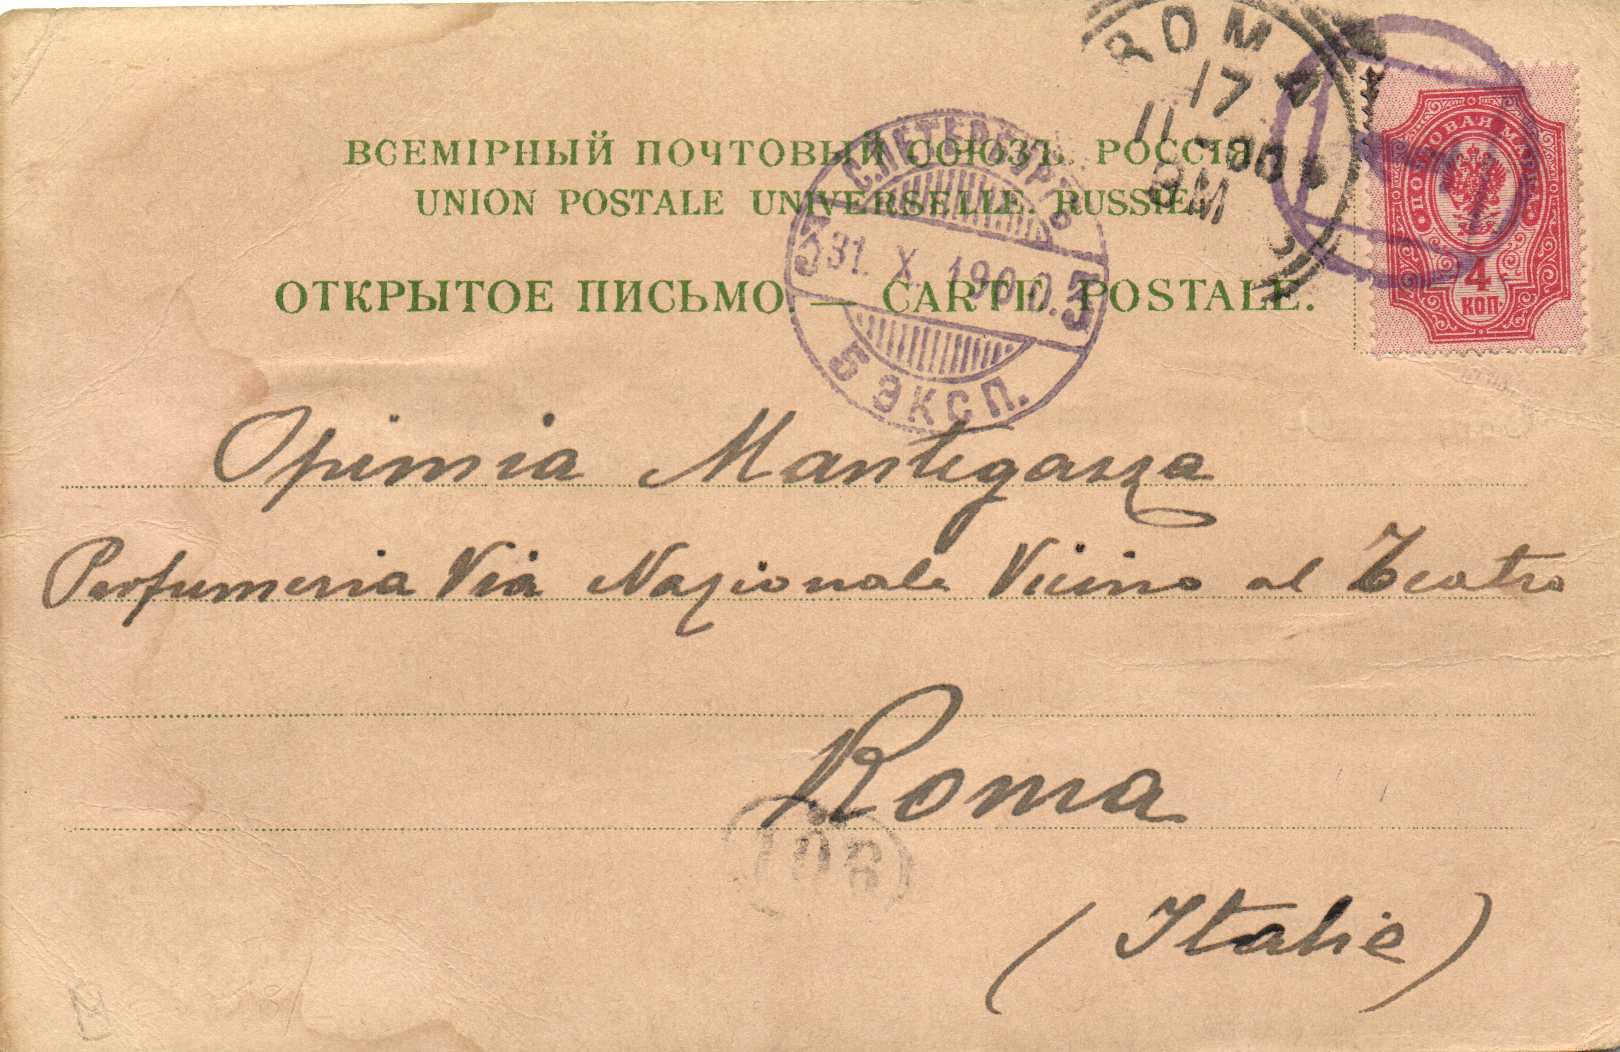 ВСЕМІРНЫЙ ПОЧТОВЫЙ СОЮЗЪ. РОССІЯ
UNION POSTALE UNIVERSELLE. RUSSIE
ОТКРЫТОЕ ПИСЬМО. — CARTE POSTALE.
С.ПЕТЕРБУРГЪ
3 31. X. 1900. 3
5 ЭКСП.
ROMA
17
11 00
8M
ПОЧТОВАЯ МАРКА
4
КОП.
Opimia Mantegazza
Profumeria Via Nazionale Vicino al Teatro
Roma
106
(Italie)
M